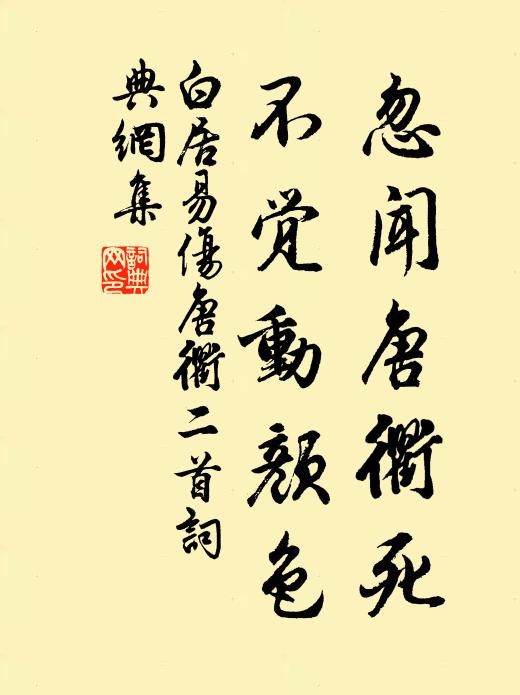 忽闻唐衢死
不觉動颜色
白居易傷唐衢二首詞
典網集
詞典网印